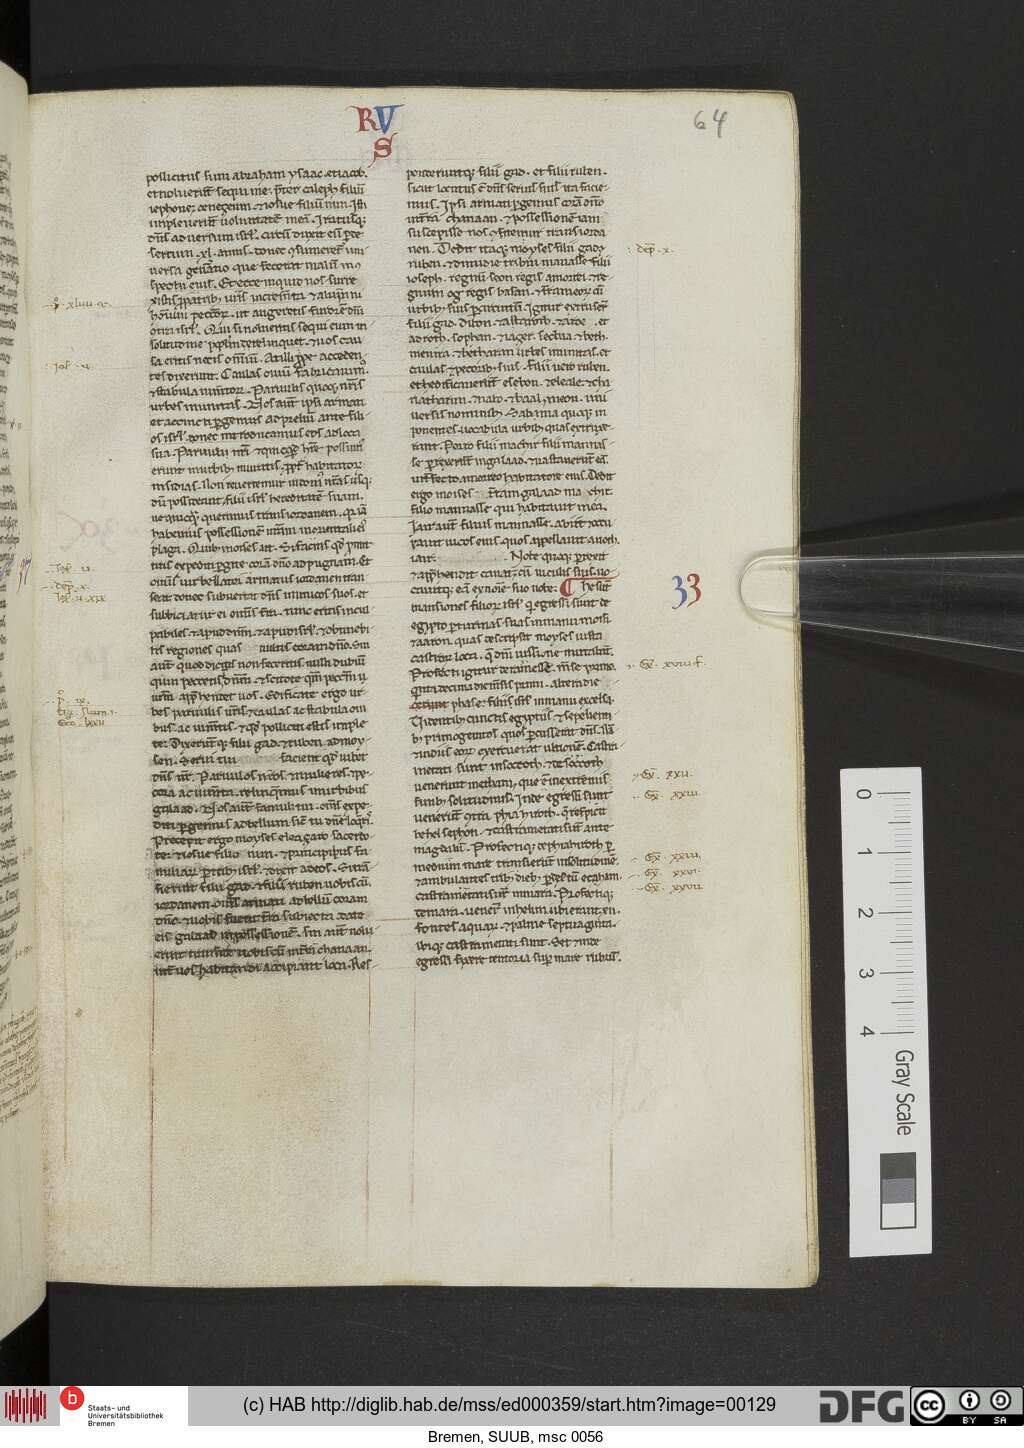 RV
S
64
pollicitus sum abraham ysaac. et iacob.
et noluerunt sequi me. preter caleph filium
iephone cenezeum. et iosue filium nun. Isti
impleuerunt uoluntatem meam. Iratusque
dns aduersum isrl. circum duxit eum per de
sertum .xl. annis. donec
uersa que fecerat malum in
spectu eius. Et ecce inquit uos surre
xistis pro patribus uris incrementa et alumpni
hominum peccatorum. ut augeretis furorem dni
contra isrl. Qui si nolueritis sequi eum in
solitudine populum derelinquet. et uos cau
sa eritis necis omnium. At illi prope acceden
tes dixerunt. Caulas ouium fabricauimus.
et stabula iumentorum. Paruulis quoque nris
urbes munitas. Nos autem ipsi armati
et accincti pergemus ad prelium ante fili
os isrl. donec introducamus eos ad loca
sua. Paruuli nri et quicquid habere possumus
erunt in urbibus muratis. propter habitatorum
insidias. Non reuertemur in domos nras usque
dum possideant filii isrl hereditatem suam.
nec quicquam queremus trans iordanem. quia
habemus possessionem nram in orientali eius
plaga. Quibus moises ait. Si facitis quod promit
titis expediti pergite coram dno ad pugnam. Et
omnis uir bellator armatus iordanem tran
seat donec subuertat dns inimicos suos. et
subiciatur ei omnis terra. tunc eritis incul
pabiles et apud dnm. et apud isrl. et obtinebi
tis regiones quas uultis coram dno. Sin
autem quod dicitis non feceritis nulli dubium
quin peccetis in dnm. et scitote quoniam peccatum u
urm apprehendet uos. Edificate ergo ur
bes paruulis uris. et caulas ac stabula oui
bus ac iumentis. et quod polliciti estis imple
te. Dixeruntque filii gad. et ruben ad moy
sen. Serui tui facient quod iubet
dns nr. Paruulos nros et mulieres. et pe
cora ac iumenta relinquimus in urbibus
galaad. Nos autem famuli tui. omnes expe
diti pergemus ad bellum sicut tu dne loqueris.
Precepit ergo moyses eleazaro sacerdo
ti. et iosue filio nun. et principibus fa
miliarum per tribus isrl. et dixit ad eos. Si tran
sierint filii gad. et filii ruben uobiscum
iordanem. omnes armati ad bellum coram
dno. et uobis fuerit terra subiecta. date
eis galaad in possessionem. sin autem nolu
erint transire uobiscum in terram chanaan.
inter uos habitandi accipiant loca. Res
ponderuntque filii gad. et filii ruben.
sicut locutus est dns seruis suis. ita facie
mus. Ipsi armati pergemus coram dno
in terram chanaan. et possessionem iam
suscepisse nos confitemur trans iorda
nem. Dedit itaque moyses filiis gad. et
ruben. et dimidie tribui manasse filii
ioseph. regnum seon regis amorrei. et re
gnum og regis basan. et terram eorum cum
urbibus suis per circuitum. Igitur extruxerunt
filii gad. dibon. et astaroth. et aroe et
adroth. sophan. et iazer. iecbaa. et beth
nemra. et betharan urbes munitas. et
caulas pecoribus suis. Filii uero ruben.
edificauerunt esebon. et eleale. et cha
riathaim. et nabo. et baal meon. uni
uersis nominibus. Sabama quoque. in
ponentes uocabula urbibus quas extruxe
rant. Porro filii machir filii manas
se perrexerunt in galaad. et uastauerunt eam.
interfecto amorreo habitatore eius. Dedit
ergo moises terram galaad machir.
filio manasse qui habitauit in ea.
Iair autem filius manasse. abiit et occu
pauit uicos eius quos appellauit auoth
iair. Nobe quoque perrexit
et apprehendit canath cum uiculis suis. uo
cauitque eam ex nomine suo nobe. He sunt
mansiones filiorum isrl qui egressi sunt de
egypto per turmas suas in manu moisi.
et aaron. quas descripsit moyses iuxta
castrorum loca. que dni iussione mutabant.
Profecti igitur de ramesse. mense primo.
quinta decima die mensis primi. altera die
phase. filii isrl in manu excelsa.
Uidentibus cunctis egyptiis. et sepelienti
bus primogenitos quos percusserat dns. nam
et in diis eorum exercuerat ultionem. Castra
metati sunt in soccoth. et de soccoth
uenerunt in etham. que est in extremis
finibus solitudinis. Inde egressi sunt
uenerunt contra phiahiroth. que respicit
behelsephon. et castrametati sunt ante
magdalum. Profectique de phiahiroth per
medium mare transierunt in solitudinem.
et ambulantes tribus diebus per desertum etham.
castrametati sunt in mara. Profectique
de mara. uenerunt in helim. ubi erant .xii.
fontes aquarum. et palme septuaginta.
ibique castrametati sunt. Set et inde
egressi fixere tentoria super mare rubrum.
33
Gray Scale
0
1
2
3
4
Staats- und
Universitätsbibliothek
Bremen
(c) HAB http://diglib.hab.de/mss/ed000359/start.htm?image=00129
DFG
cc
BY SA
Bremen, SUUB, msc 0056